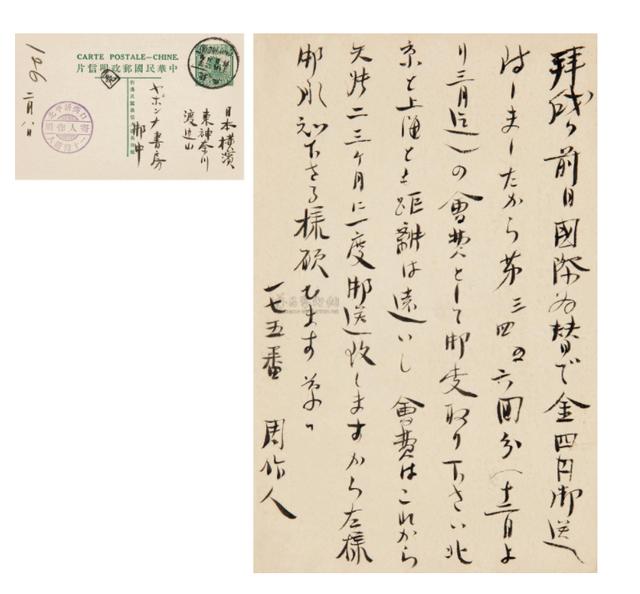 CARTE POSTALE—CHINE.
片信明政郵國民華中
日本橫濱
東神奈川
渡辺山
ヤポンナ書房
御中
二月八日
周作人
拝啓 前日國際為替で金四円御送
付しましたから第三四五六回分(十二月よ
り三月迄)の會費として御受取り下さい北
京と上海とも距離は遠いし 會費はこれから
矢張二三ヶ月に一度御送致しますから左様
御承知下さる様願ひます 草々
一七五番 周作人